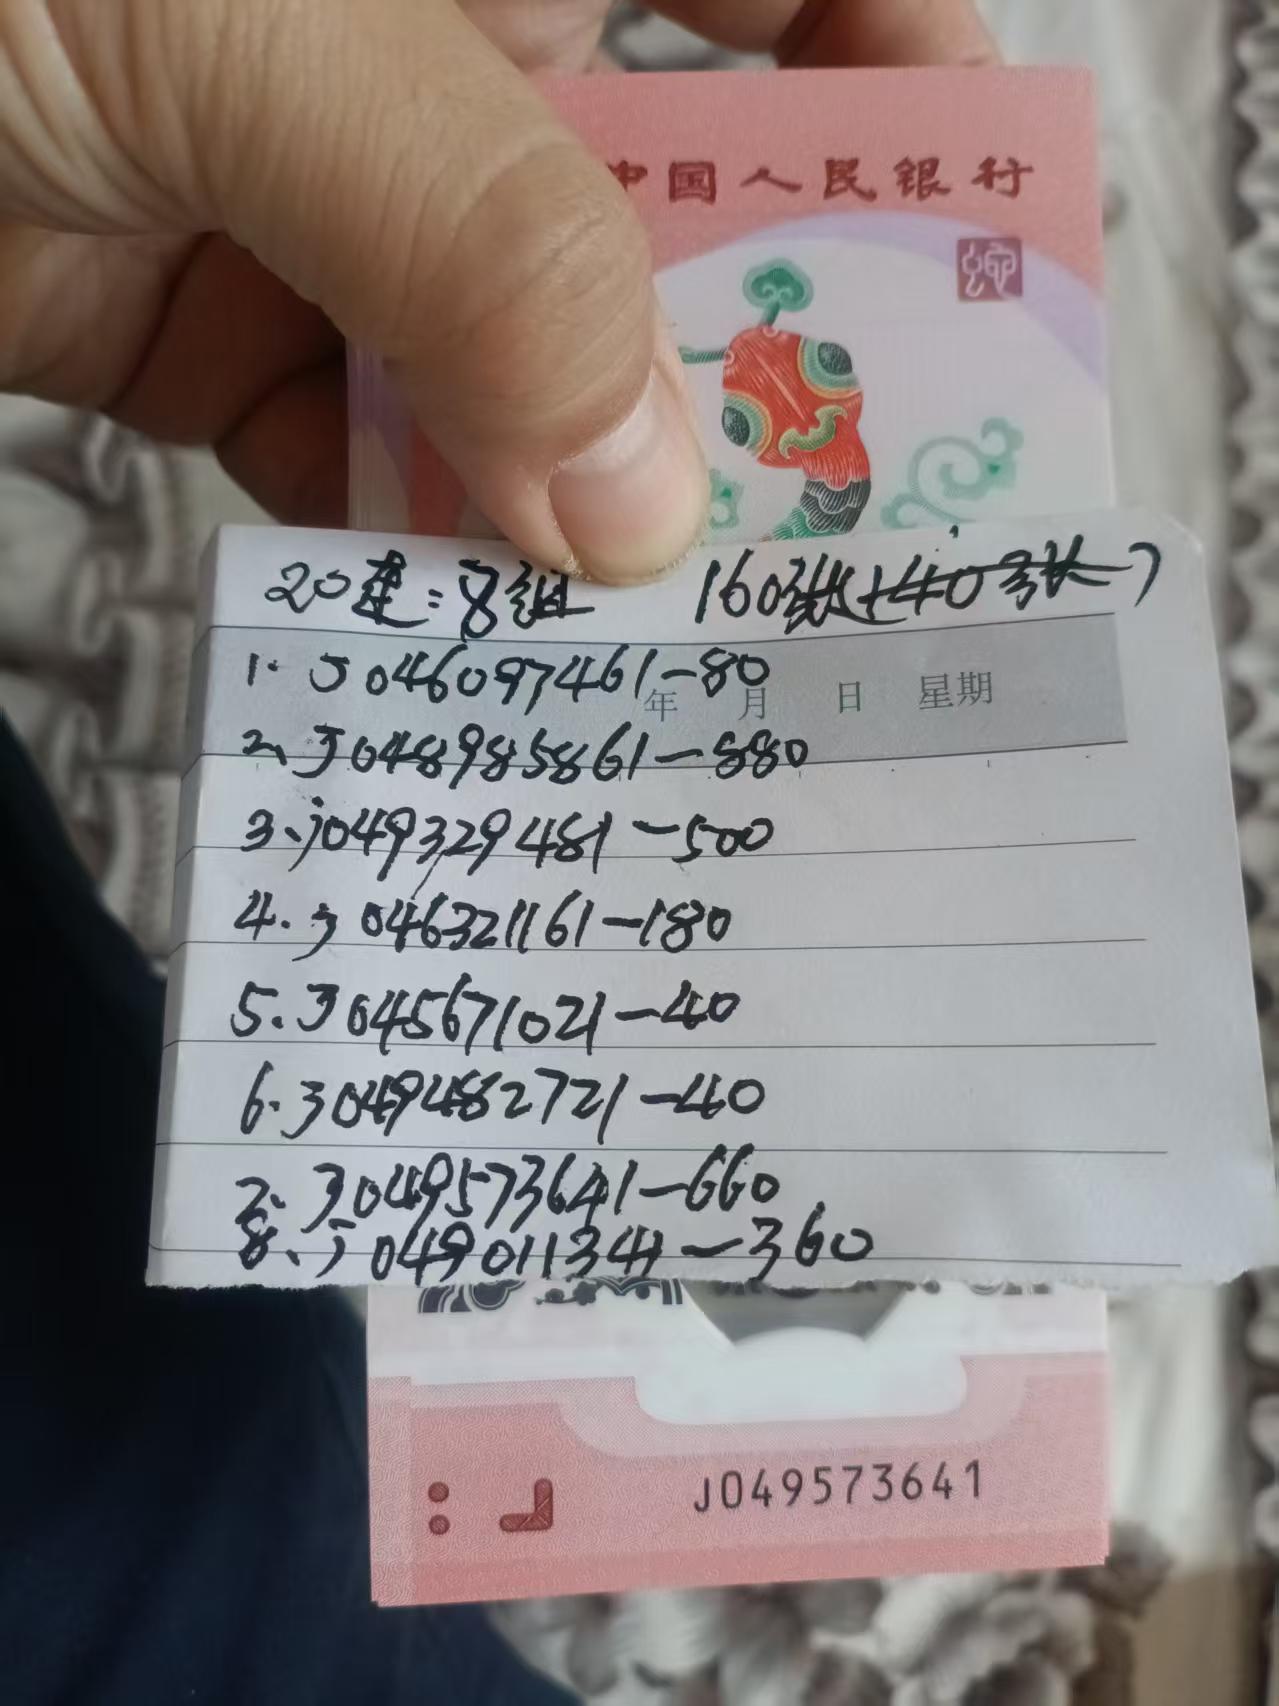 中国人民银行
20连:8组 160张+40张)
1. J046097461-80
年 月 日 星期
2、J048985861-880
3、J049329481-500
4. J046321161-180
5. J045671021-40
6. J049482721-40
7. J049573641-660
8、J049011341-360
J049573641